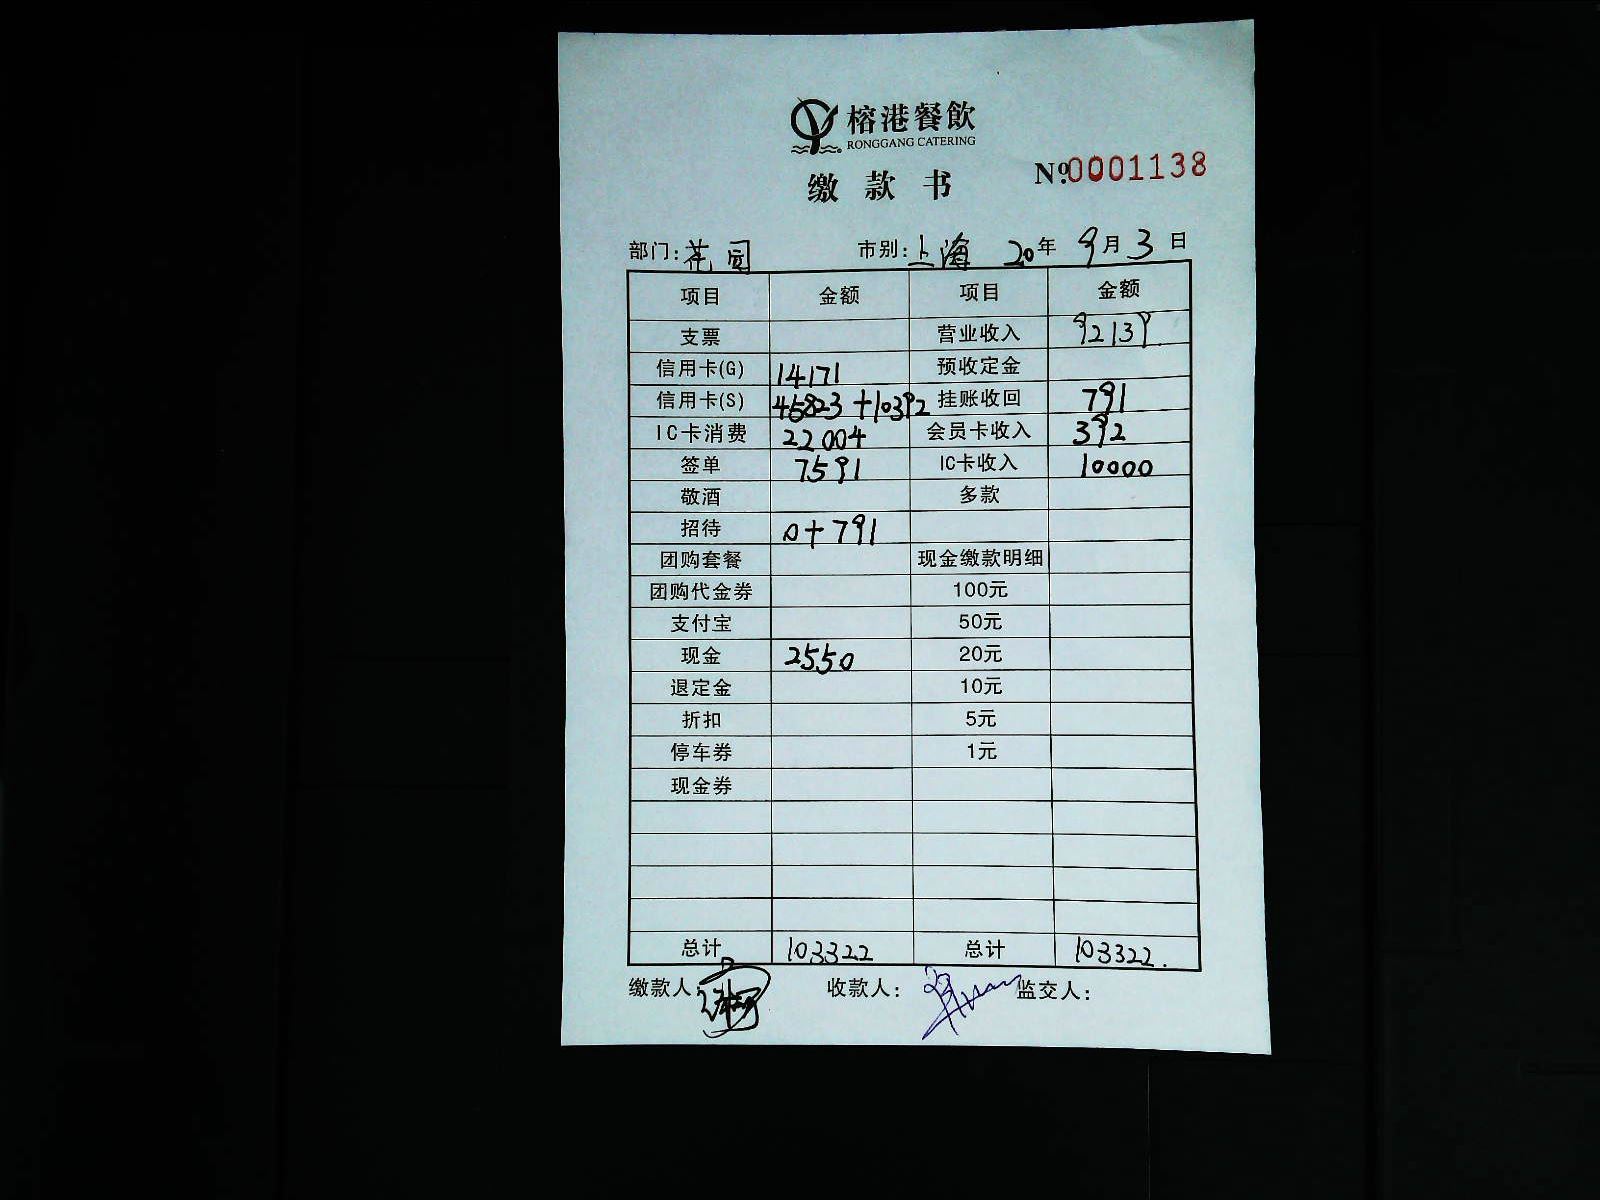 榕港餐飲
RONGGANG CATERING
缴款书
Nº0001138
部门：花园 市别：上海 20年 9月3日
项目 金额 项目 金额
支票 营业收入 92139
信用卡(G) 14171 预收定金
信用卡(S) 45823+10392 挂账收回 791
IC卡消费 22004 会员卡收入 392
签单 7591 IC卡收入 10000
敬酒 多款
招待 0+791
团购套餐 现金缴款明细
团购代金券 100元
支付宝 50元
现金 2550 20元
退定金 10元
折扣 5元
停车券 1元
现金券
总计 103322 总计 103322.
缴款人： 收款人： 监交人：